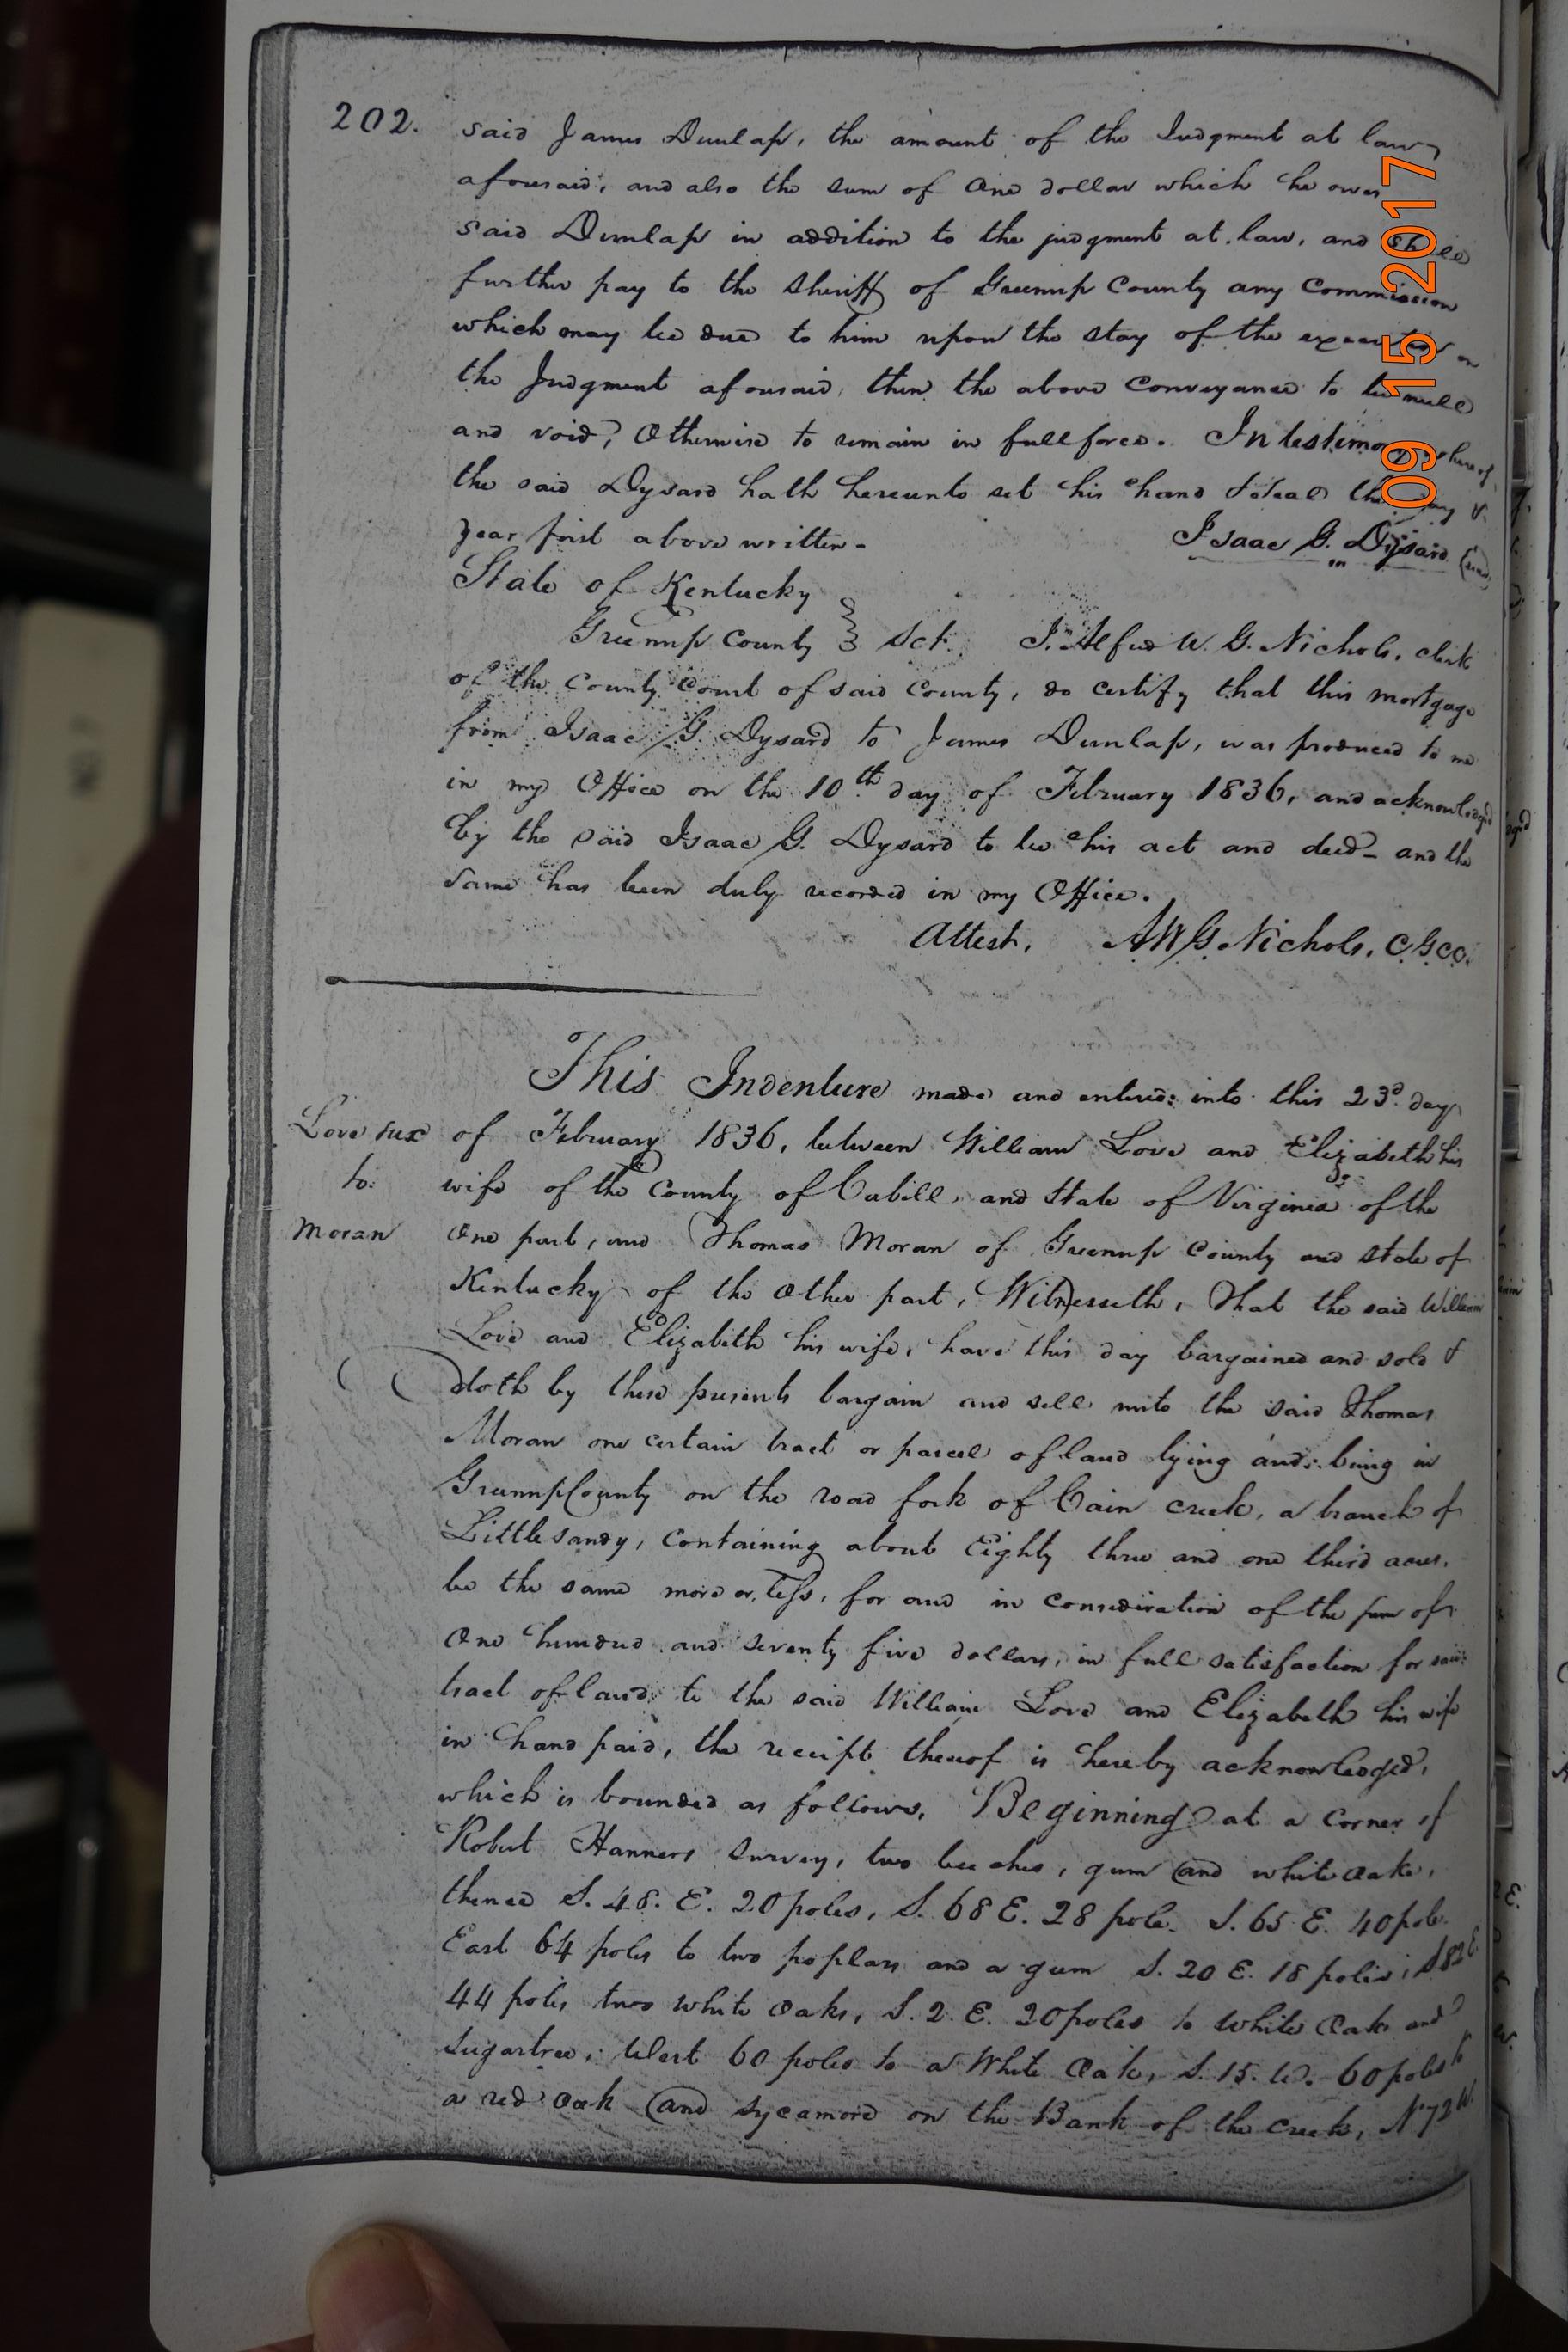 202. said James Dunlap, the amount of the Judgment at law
aforesaid, and also the sum of One dollar which he owes
said Dunlap in addition to the judgment at law, and shall
further pay to the Sheriff of Greenup County any Commission
which may be due to him upon the stay of the execution on
the Judgment aforesaid, then the above Conveyance to be null
and void, Otherwise to remain in full force. In testimony whereof,
the said Dysard hath hereunto set his hand & seal the day &
year first above written - Isaac G. Dysard (seal)
State of Kentucky
Greenup County } Sct. I. Alfred W. G. Nichols, clerk
of the County Court of said County, do certify that this mortgage
from Isaac G. Dysard to James Dunlap, was produced to me
in my Office on the 10th day of February 1836, and acknowledged
by the said Isaac G. Dysard to be his act and deed - and the
same has been duly recorded in my Office.
Attest, AWG. Nichols, C.G.C.C.
This Indenture made and entered into this 23d. day
Love & ux of February 1836, between William Love and Elizabeth his
to: wife of the County of Cabill, and State of Virginia of the
Moran One part, and Thomas Moran of Greenup County and State of
Kentucky of the Other part, Witnesseth, That the said William
Love and Elizabeth his wife, have this day bargained and sold &
doth by these presents bargain and sell unto the said Thomas
Moran one certain tract or parcel of land lying and being in
Greenup County on the road fork of Cain creek, a branch of
Little sandy, containing about Eighty three and one third acres,
be the same more or less, for and in consideration of the sum of
One hundred and seventy five dollars, in full satisfaction for said
tract of land, to the said William Love and Elizabeth his wife
in hand paid, the receipt thereof is hereby acknowledged,
which is bounded as follows, Beginning at a corner of
Robert Hanners survey, two beeches, gum and white oake,
thence S. 48. E. 20 poles, S. 68 E. 28 pole. S. 65 E. 40 pole.
East 64 poles to two poplars and a gum S. 20 E. 18 poles, S 82 E.
44 poles two white Oaks, S. 2. E. 20 poles to White Oak and
sugartree, West 60 poles to a White Oak, S. 15. W. 60 poles to
a red Oak and sycamore on the Bank of the creek, N 72 W.
09 15 2017